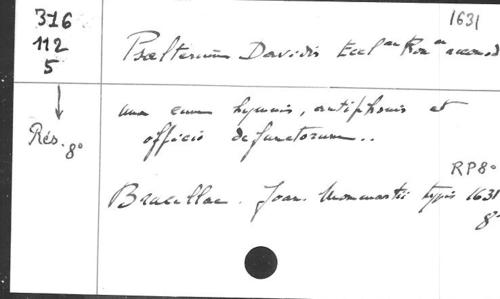 316
112
5
Rés. 8°
1631
Psalterium Davidis Eccl ae Rom ae accomod
una cum hymnis, antiphonis et
officio defunctorum..
RP8°
Bruxellae. Joan. Mommartii typis 1631
8°